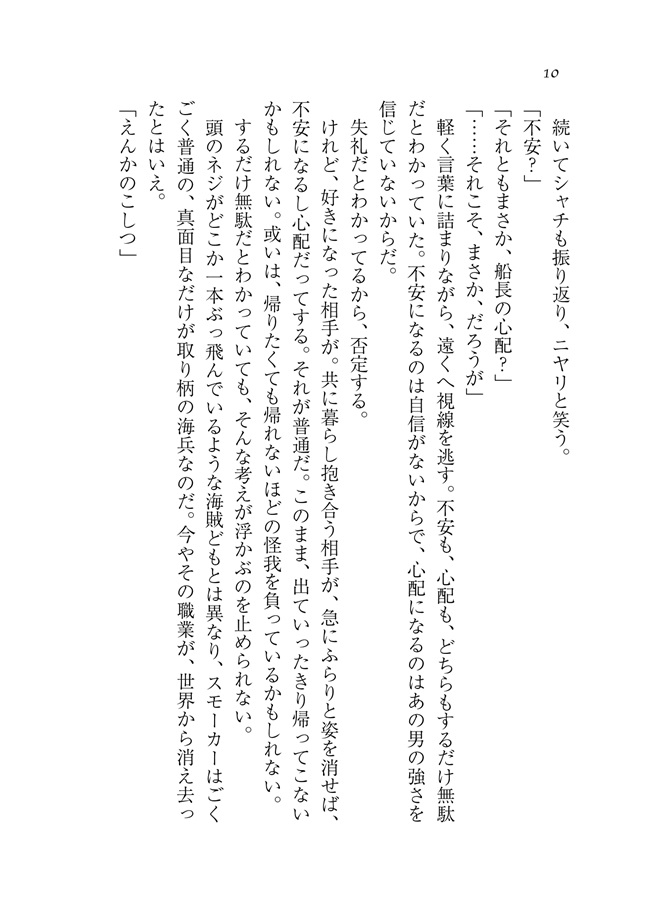 10
続いてシャチも振り返り、ニヤリと笑う。
「不安？」
「それともまさか、船長の心配？」
「……それこそ、まさか、だろうが」
軽く言葉に詰まりながら、遠くへ視線を逃す。不安も、心配も、どちらもするだけ無駄
だとわかっていた。不安になるのは自信がないからで、心配になるのはあの男の強さを
信じていないからだ。
失礼だとわかってるから、否定する。
けれど、好きになった相手が。共に暮らし抱き合う相手が、急にふらりと姿を消せば、
不安になるし心配だってする。それが普通だ。このまま、出ていったきり帰ってこない
かもしれない。或いは、帰りたくても帰れないほどの怪我を負っているかもしれない。
するだけ無駄だとわかっていても、そんな考えが浮かぶのを止められない。
頭のネジがどこか一本ぶっ飛んでいるような海賊どもとは異なり、スモーカーはごく
ごく普通の、真面目なだけが取り柄の海兵なのだ。今やその職業が、世界から消え去っ
たとはいえ。
「えんかのこしつ」